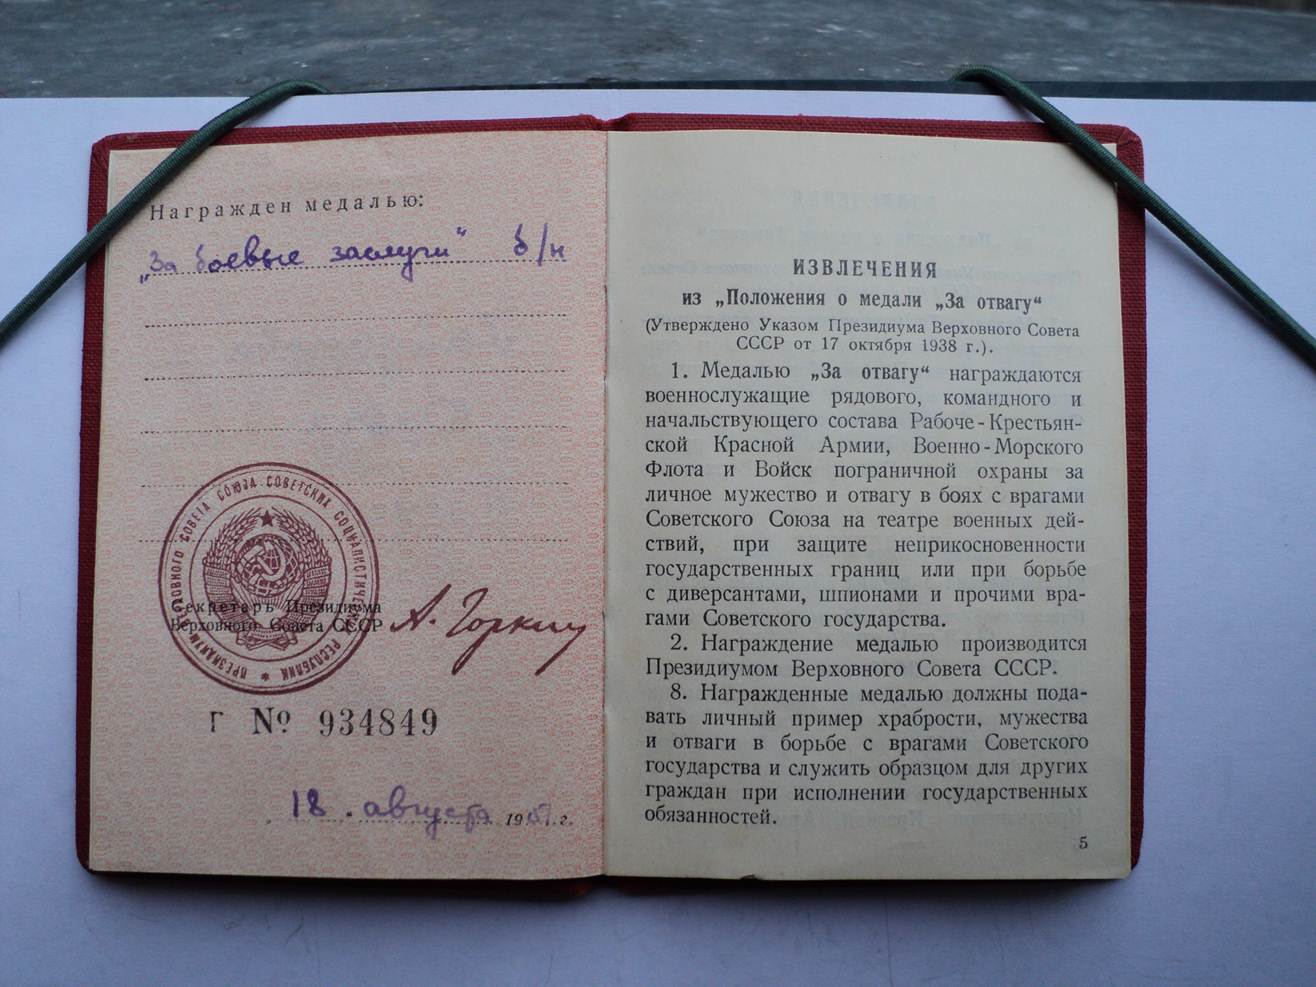 Награжден медалью:
„За боевые заслуги“ б/н
ПРЕЗИДИУМ ВЕРХОВНОГО СОВЕТА СОЮЗА СОВЕТСКИХ СОЦИАЛИСТИЧЕСКИХ РЕСПУБЛИК
Секретарь Президиума
Верховного Совета СССР А. Горкин
Г № 934849
18. августа 19 г.
ИЗВЛЕЧЕНИЯ
из „Положения о медали „За отвагу“
(Утверждено Указом Президиума Верховного Совета
СССР от 17 октября 1938 г.).
1. Медалью „За отвагу“ награждаются
военнослужащие рядового, командного и
начальствующего состава Рабоче-Крестьян-
ской Красной Армии, Военно-Морского
Флота и Войск пограничной охраны за
личное мужество и отвагу в боях с врагами
Советского Союза на театре военных дей-
ствий, при защите неприкосновенности
государственных границ или при борьбе
с диверсантами, шпионами и прочими вра-
гами Советского государства.
2. Награждение медалью производится
Президиумом Верховного Совета СССР.
8. Награжденные медалью должны пода-
вать личный пример храбрости, мужества
и отваги в борьбе с врагами Советского
государства и служить образцом для других
граждан при исполнении государственных
обязанностей.
5